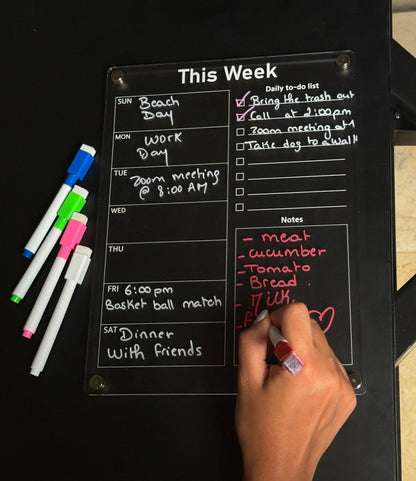 This Week
SUN Beach
Day
MON Work
Day
TUE Zoom meeting
@ 8:00 AM
WED
THU
FRI 6:00 pm
Basket ball match
SAT Dinner
With friends
Daily to-do list
Bring the trash out
Call at 2:00pm
Zoom meeting at
Take dog to a walk
Notes
- meat
- cucumber
- Tomato
- Bread
- Milk